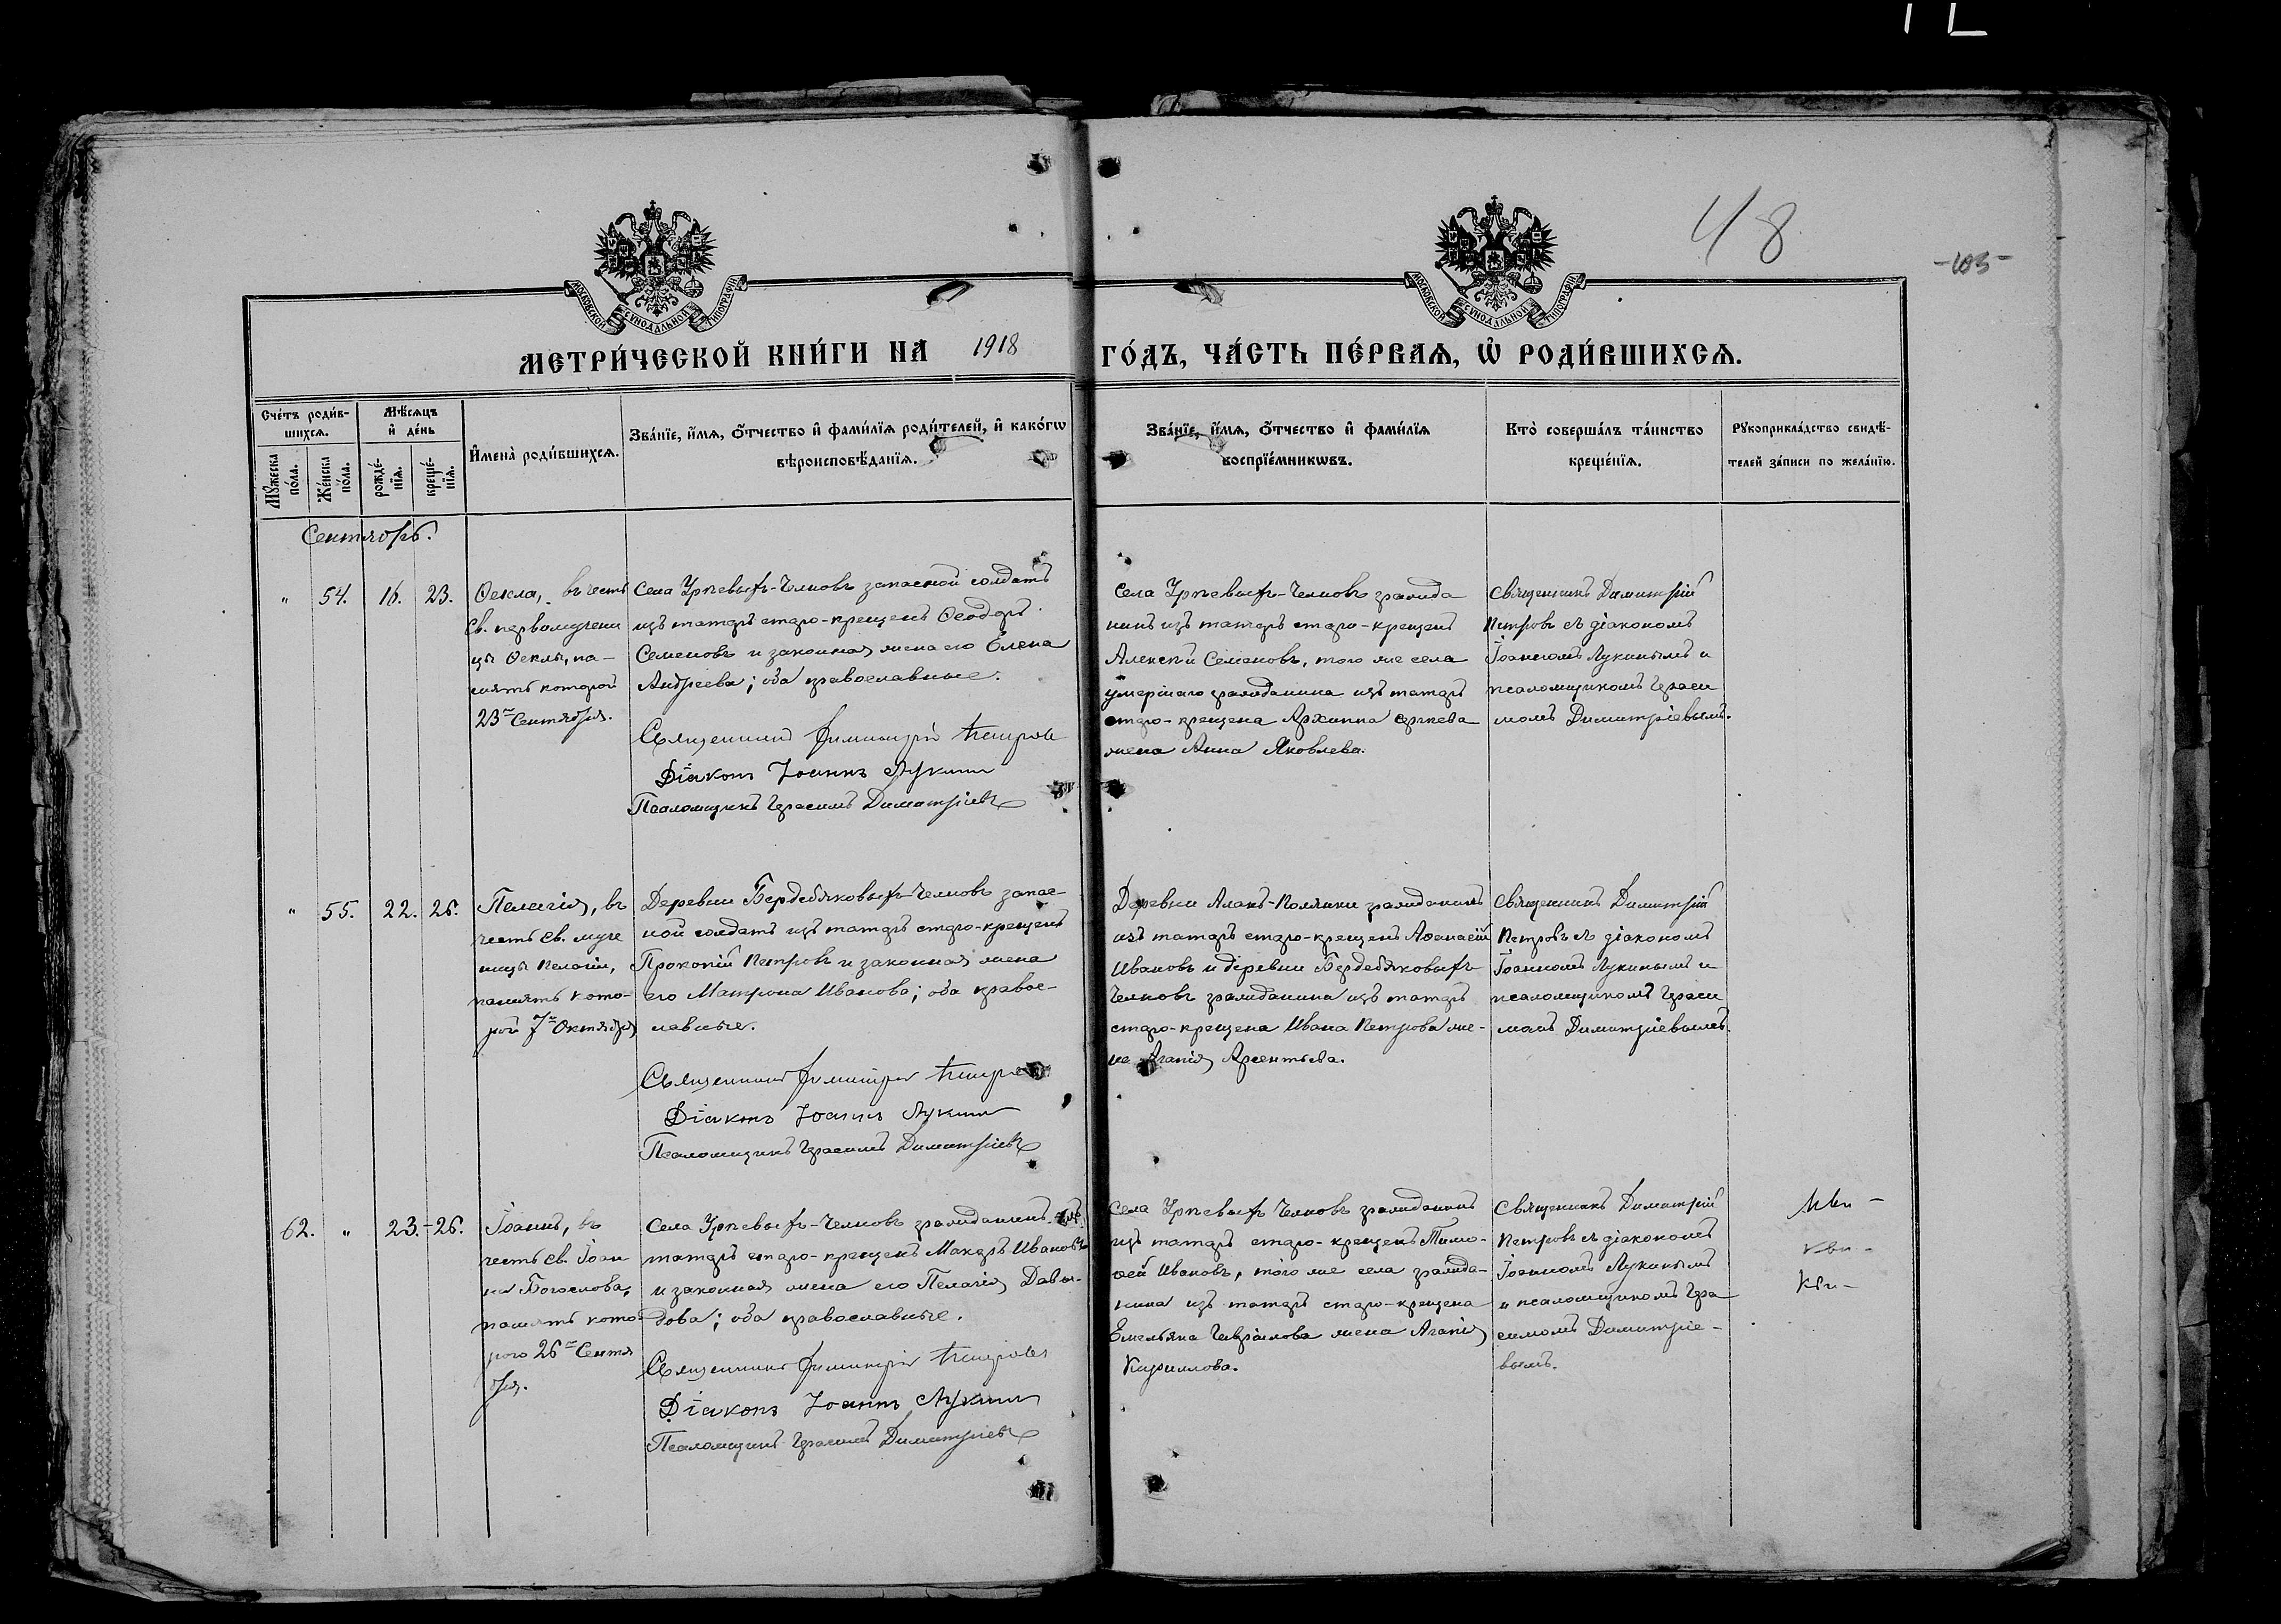 48
-103-
МОСКОВСКОЙ СУНОДАЛЬНОЙ ТИПОГРАФІИ
МОСКОВСКОЙ СУНОДАЛЬНОЙ ТИПОГРАФІИ
МЕТРИ́ЧЕСКОЙ КНИ́ГИ НА 1918 ГО́ДЪ, ЧА́СТЬ ПЕ́РВАѦ, Ѡ҆ РОДИ́ВШИХСѦ.
Сче́тъ роди́в-
шихсѧ.
Мꙋ́жеска
по́ла.
Же́нска
по́ла.
Мѣ́сѧцъ
и҆ де́нь
рожде́-
нїѧ.
креще́-
нїѧ.
И҆мена̀ роди́вшихсѧ.
Зва́нїе, и҆́мѧ, ѻ҆́тчество и҆ фами́лїѧ роди́телей, и҆ како́гѡ
вѣроисповѣ́данїѧ.
Зва́нїе, и҆́мѧ, ѻ҆́тчество и҆ фами́лїѧ
воспрїе́мникѡвъ.
Кто̀ соверша́лъ та́инство
креще́нїѧ.
Рꙋкоприкла́дство свидѣ́-
телей за́писи по жела́нїю.
Сентябрь.
" 54. 16. 23.
Ѳекла, въ честь
Св. первомучени
цы Ѳеклы, па-
мять которой
23го Сентября.
Села Урѣевыхъ-Челновъ запасной солдатъ
изъ татаръ старо-крещенъ Ѳеодоръ
Семеновъ и законная жена его Елена
Андреева; оба православные.
Священникъ Димитрій Петровъ
Діаконъ Іоаннъ Лукинъ
Псаломщикъ Герасимъ Димитріевъ
Села Урѣевыхъ-Челновъ гражда
нинъ изъ татаръ старо-крещенъ
Алексѣй Семеновъ, того же села
умершаго гражданина изъ татаръ
старо-крещена Архипа Сергѣева
жена Анна Яковлева.
Священникъ Димитрій
Петровъ съ діакономъ
Іоанномъ Лукинымъ и
псаломщикомъ Гераси
момъ Димитріевымъ.
" 55. 22. 26.
Пелагія, въ
честь Св. муче
ницы Пелагіи,
память кото-
рой 7го Октября
Деревни Бердебяковыхъ-Челновъ запас-
ной солдатъ изъ татаръ старо-крещенъ
Прокопій Петровъ и законная жена
его Матрона Иванова; оба правос-
лавные.
Священникъ Димитрій Петровъ
Діаконъ Іоаннъ Лукинъ
Псаломщикъ Герасимъ Димитріевъ
Деревни Аланъ-Полянки гражданинъ
изъ татаръ старо-крещенъ Аѳанасій
Ивановъ и деревни Бердебяковыхъ
Челновъ гражданина изъ татаръ
старо-крещена Ивана Петрова же-
на Агапія Арсентьева.
Священникъ Димитрій
Петровъ съ діакономъ
Іоанномъ Лукинымъ и
псаломщикомъ Гераси
момъ Димитріевымъ.
62. " 23. - 26.
Іоаннъ, въ
честь Св. Іоан
на Богослова,
память кото
раго 26го Сентя
бря.
Села Урѣевыхъ-Челновъ гражданинъ изъ
татаръ старо-крещенъ Макаръ Ивановъ
и законная жена его Пелагія Давы-
дова; оба православные.
Священникъ Димитрій Петровъ
Діаконъ Іоаннъ Лукинъ
Псаломщикъ Герасимъ Димитріевъ
Села Урѣевыхъ Челновъ гражданинъ
изъ татаръ старо-крещенъ Тимо-
ѳей Ивановъ, того же села гражда-
нина изъ татаръ старо-крещена
Емельяна Гаврилова жена Агапія
Кириллова.
Священникъ Димитрій
Петровъ съ діакономъ
Іоанномъ Лукинымъ
и псаломщикомъ Гера
симомъ Димитріе-
вымъ.